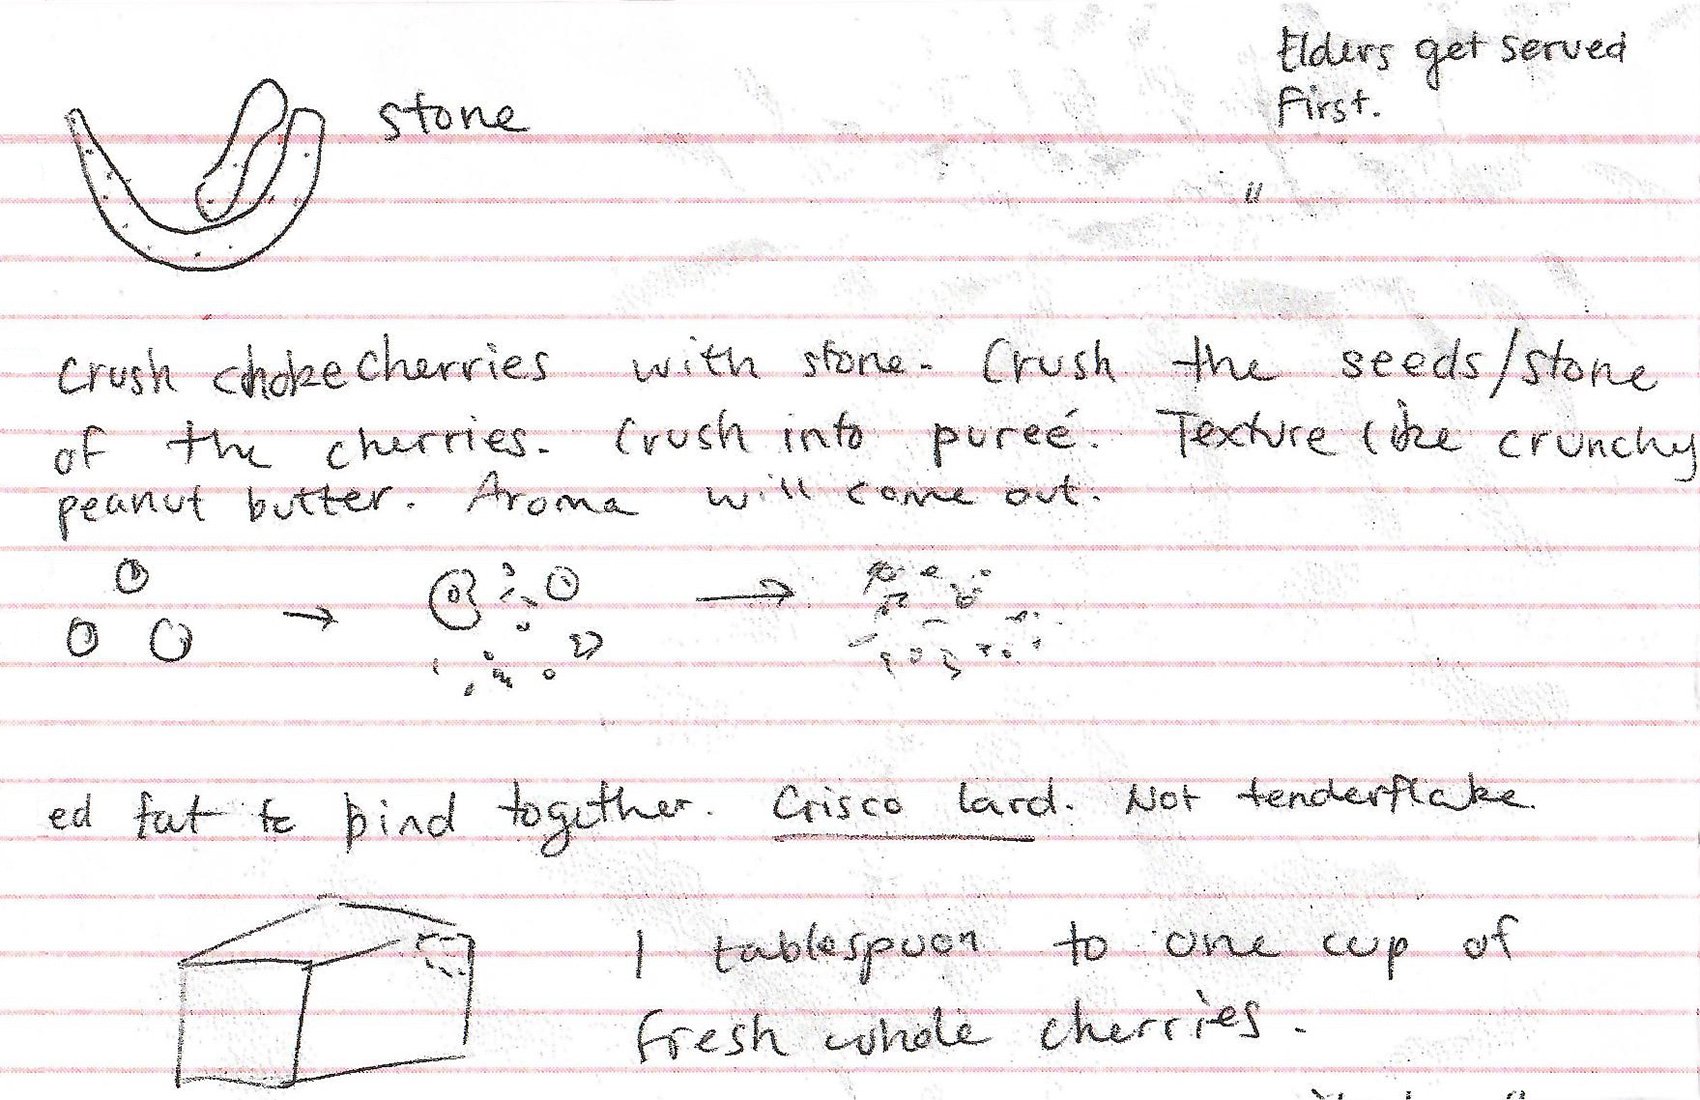 Elders get served
First.
stone
"
Crush chokecherries with stone. Crush the seeds/stone
of the cherries. Crush into pureé. Texture like crunchy
peanut butter. Aroma will come out.
ed fat to bind together. Crisco lard. Not tenderflake.
1 tablespoon to one cup of
fresh whole cherries.